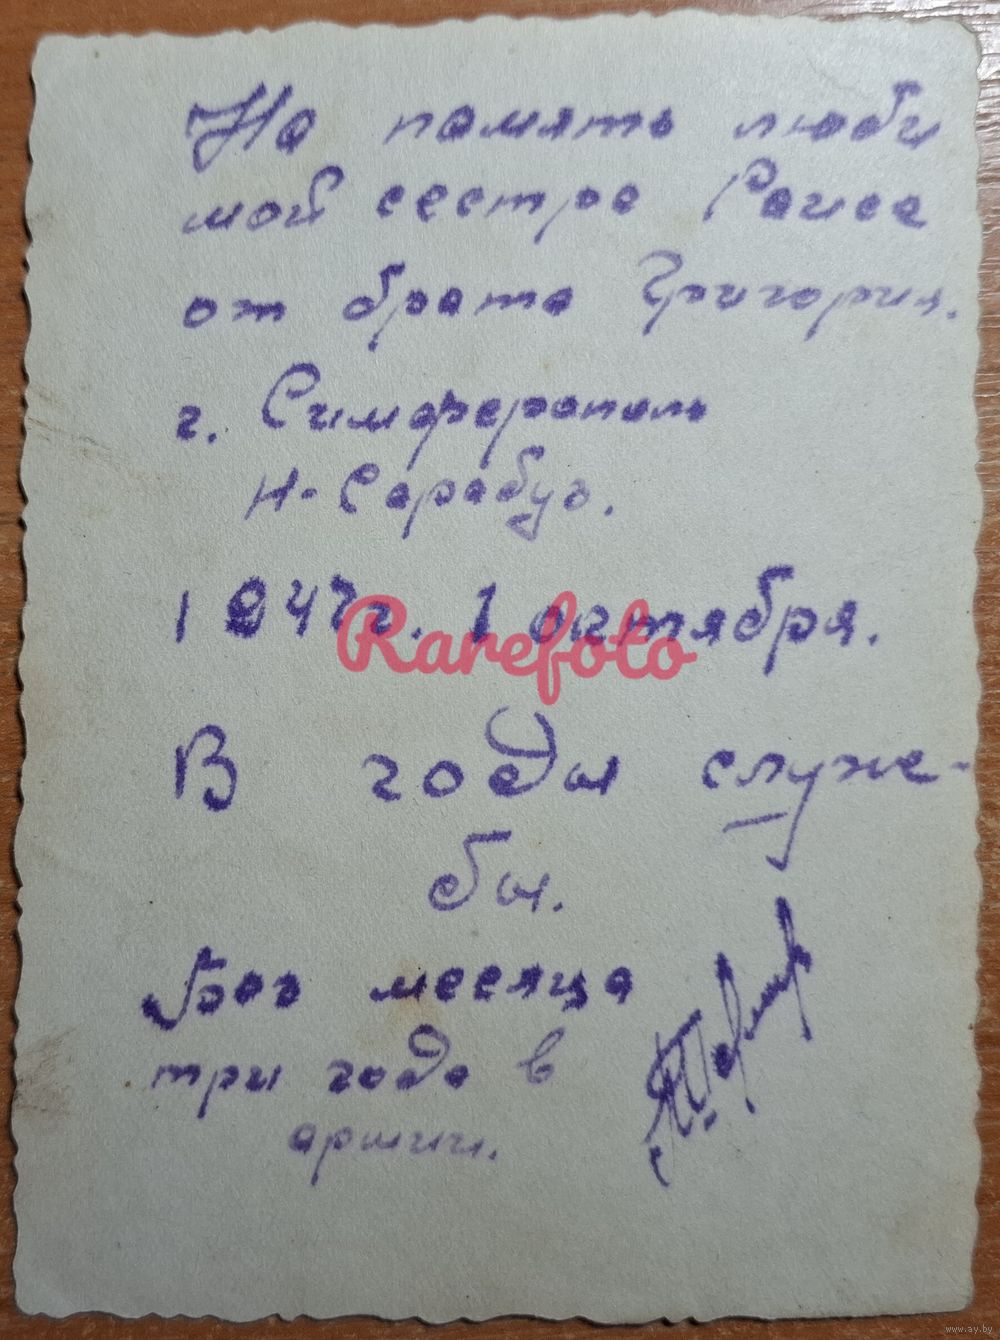 На память люби
мой сестре Раисе
от брата Григория.
г. Симферополь
Н-Сарабуз.
1947г. 1 октября.
Rarefoto
В годы служ-
бы.
Без месяца
три года в
армии.
www.ay.by